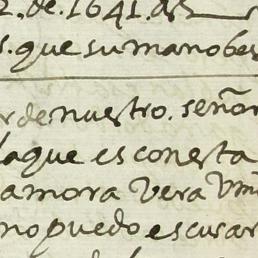 2. de. 1641. as
s. que su mano bes
r de nuestro. señor
laque es con esta
amora Vera Vm
no puedo escusar